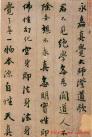 永嘉真覺大師證道歌
君不見絕學無為閑道人不
除妄想不求真無明實性即
佛性幻化空身即法身法身
覺了無一物本源自性天真